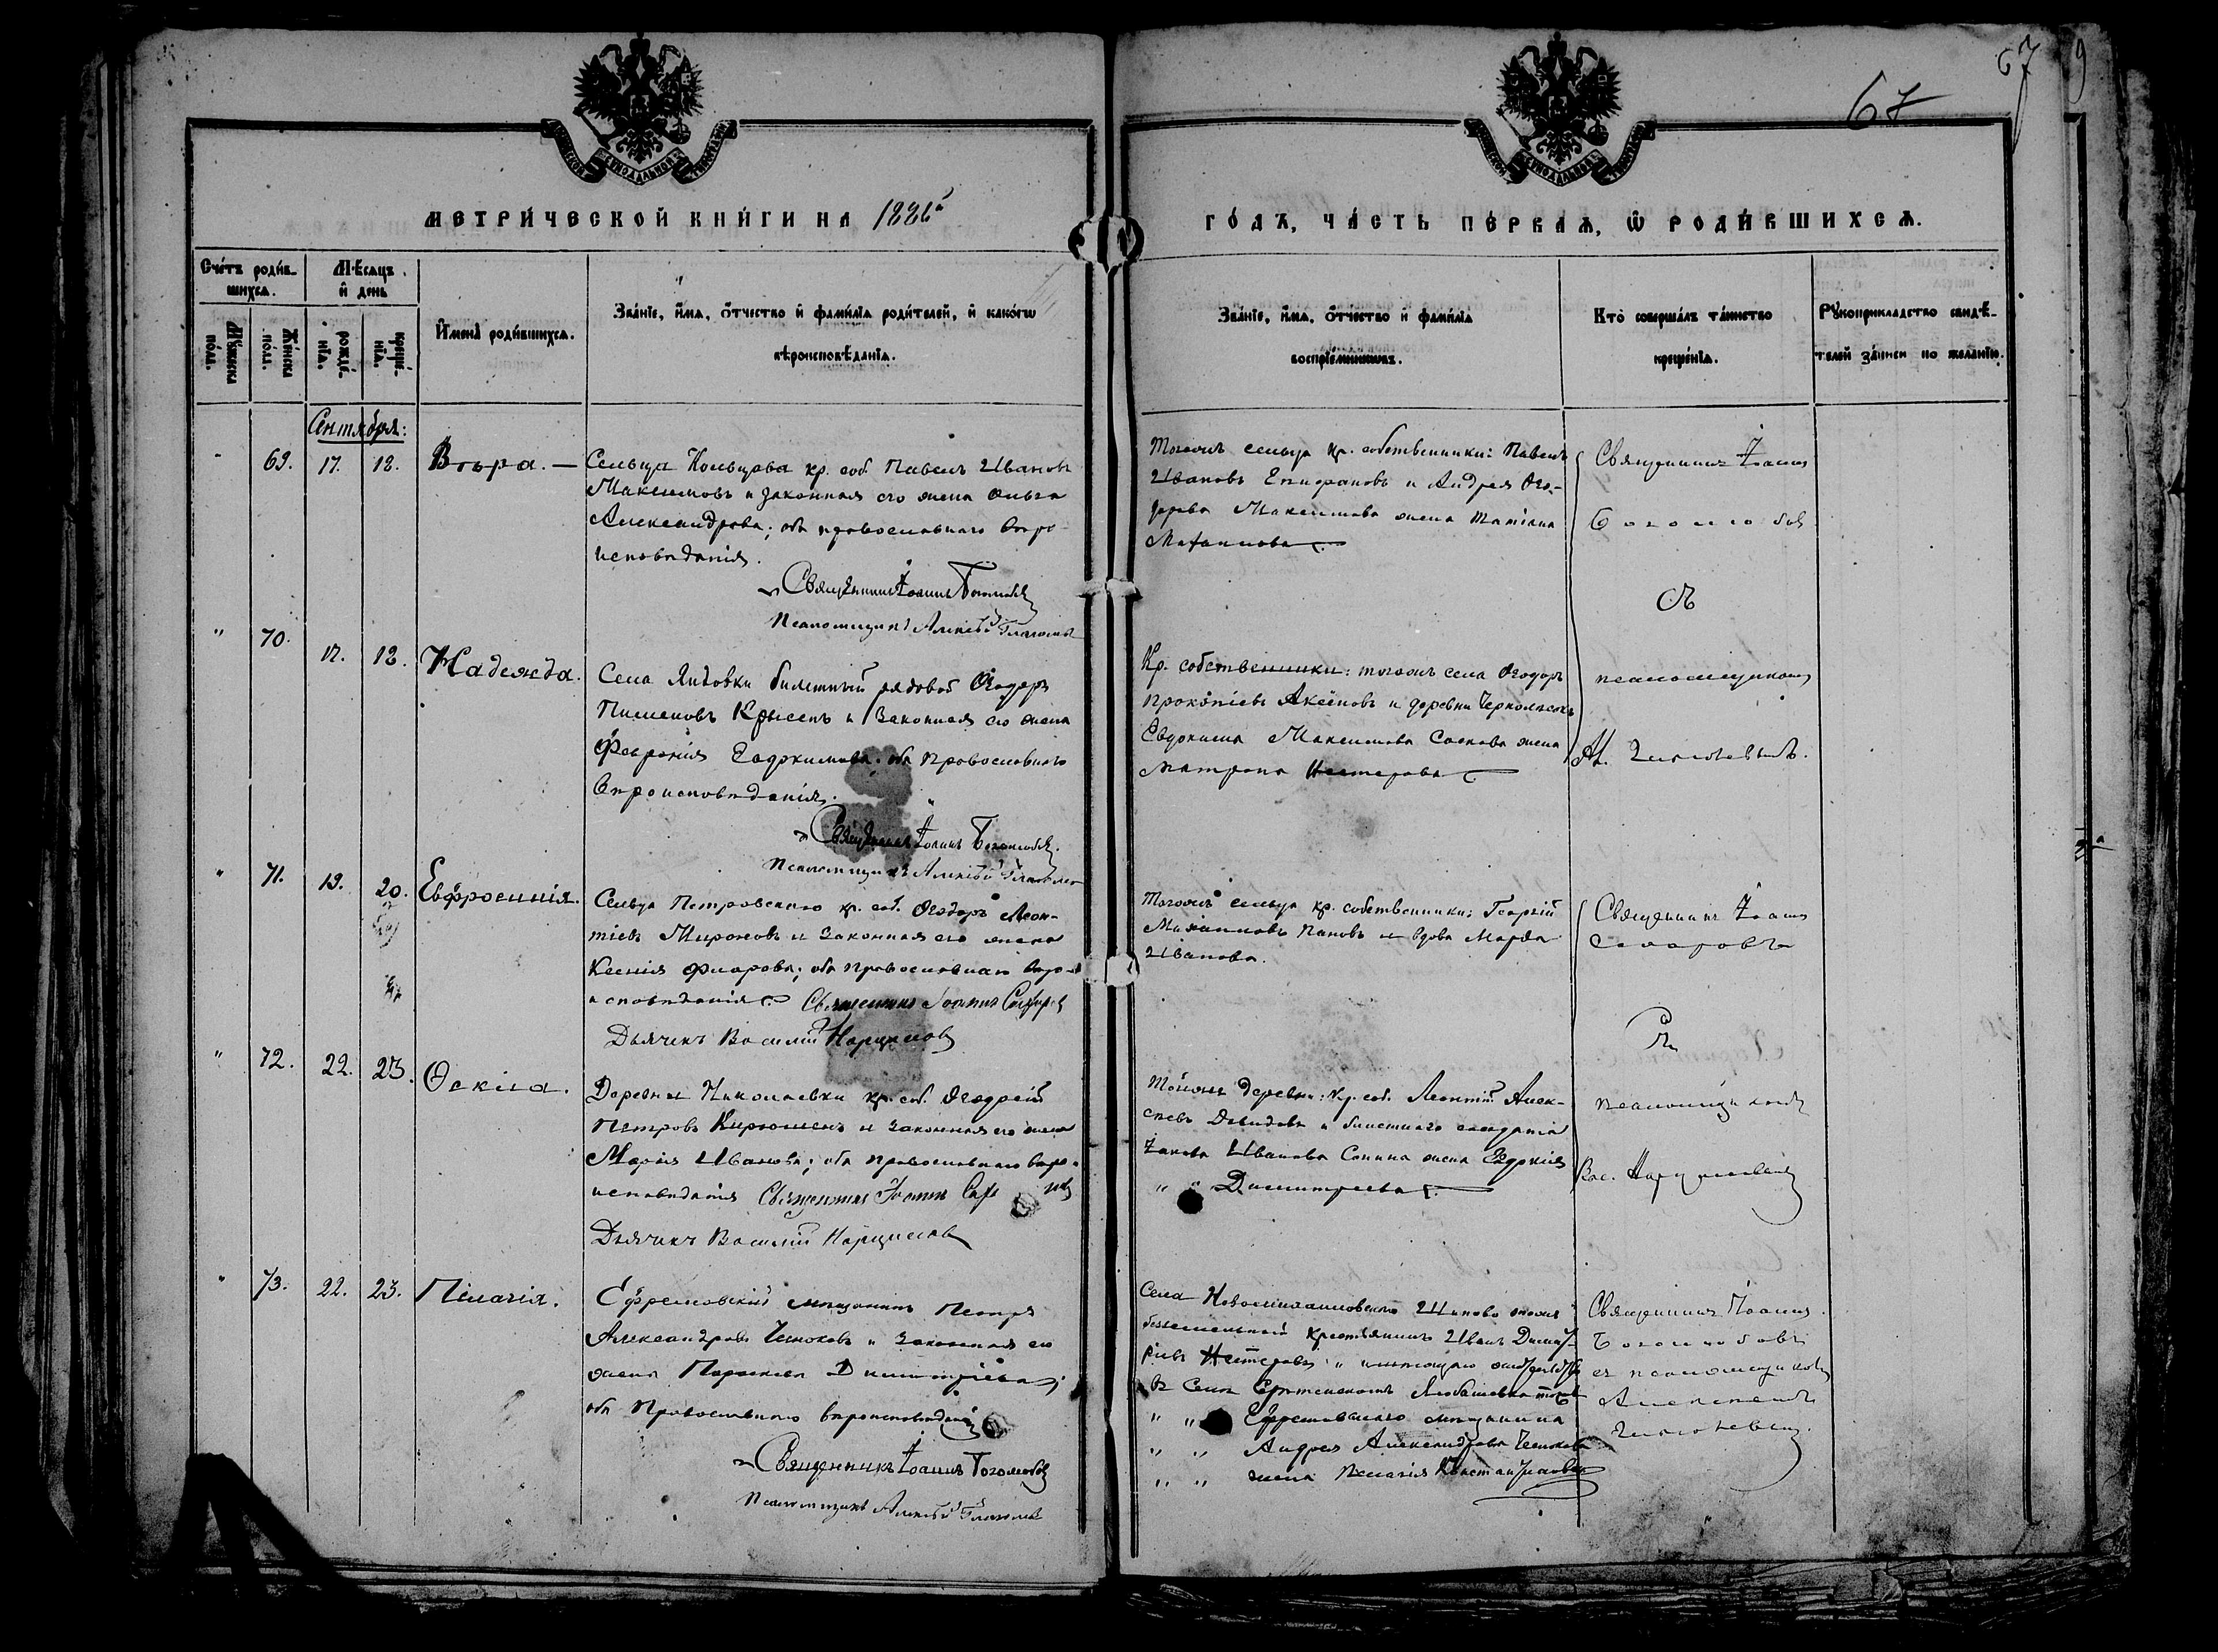 67
67
9
МЕТРИ́ЧЕСКОЙ КНИ́ГИ НА 1886й
ГО́ДЪ, ЧА́СТЬ ПЕ́РВАѦ, Ѽ РОДИ́ВШИХСѦ.
Сче́тъ роди́в-
шихсѧ.
Мѣ́сяцъ
и҆ день
Му́жеска
по́лъ.
Же́нска
по́лъ.
рожде́-
нїѧ.
креще́-
нїѧ.
И҆мена̀ роди́вшихсѧ.
Зва́нїе, и҆́мѧ, ѻ҆́тчество и҆ фами́лїѧ роди́телей, и҆ како́гѡ
вѣроисповѣ́данїѧ.
Зва́нїе, и҆́мѧ, ѻ҆́тчество и҆ фами́лїѧ
воспрїе́мниковъ.
Кто̀ соверша́лъ та́инство
креще́нїѧ.
Рꙋкоприкла́дство свидѣ́-
телей за́писи по жела́нїю.
Сентября:
69. 17. 18. Вѣра. —
Сельца Кольцова кр. соб Павелъ Ивановъ
Максимовъ и законная его жена Ольга
Александрова; оба православнаго вѣро-
исповѣданія.
Священникъ Іоаннъ Боголюбовъ
Псаломщикъ Алексѣй Глаголевъ
Тогожъ сельца кр. собственники: Павелъ
Ивановъ Епифановъ и Андрея Ѳео-
дорова Максимова жена Татіана
Михаилова
Священникъ Іоаннъ
Боголюбовъ
съ
псаломщикомъ
А. Глаголевымъ.
" 70. 17. 18. Надежда.
Села Яндовки билетный рядовой Ѳеодоръ
Пименовъ и законная его жена
Феvронія Евдокимова: оба православнаго
вѣроисповѣданія.
Священникъ Іоаннъ Боголюбовъ.
Псаломщикъ Алексѣй Глаголевъ
Кр. собственники: тогожъ села Ѳеодоръ
Прокопіевъ Аксеновъ и деревни
Евдокима Максимова жена
Матрона Нестерова
" 71. 19. 20. Евфросинія.
Сельца Петровскаго кр. соб. Ѳеодоръ Леон-
тіевъ Мироновъ и законная его жена
Ксенія оба православнаго вѣро-
исповѣданія Священникъ Іоаннъ Сахаровъ
Дьячекъ Василій Нарциссовъ
Тогожъ сельца кр. собственники: Георгій
Михаиловъ Пановъ и вдова Марѳа
Иванова.
Священникъ Іоаннъ
Сахаровъ
Съ
псаломщикомъ
Вас. Нарциссовымъ
" 72. 22. 23. Ѳекла.
Деревни Николаевки кр. соб.
Петровъ Кирюшенъ и законная его жена
Марія Иванова; оба православнаго вѣро-
исповѣданія Священникъ Іоаннъ
Дьячекъ Василій Нарциссовъ
Тойже деревни: кр. соб. Леонтій Алек-
сѣевъ Давидовъ и билетнаго солдата
Іакова Иванова Сонина жена Евдокія
" " Димитріева
" 73. 22. 23. Пелагія.
Ефремовскій мѣщанинъ Петръ
Александровъ Чесноковъ и законная его
жена Параскева Димитріева;
оба православнаго вѣроисповѣданія
Священникъ Іоаннъ Боголюбовъ
Псаломщикъ Алексѣй Глаголевъ
Села Новомихаиловскаго Шипово тожъ
безземельный крестьянинъ Иванъ Димит-
ріевъ Нестеровъ и
въ селѣ Любашевка тожъ
" " Ефремовскаго мѣщанина
" " Андрея Александрова Чеснокова
" " жена Пелагія Константинова
Священникъ Іоаннъ
Боголюбовъ
съ псаломщикомъ
Алексѣемъ
Глаголевымъ.